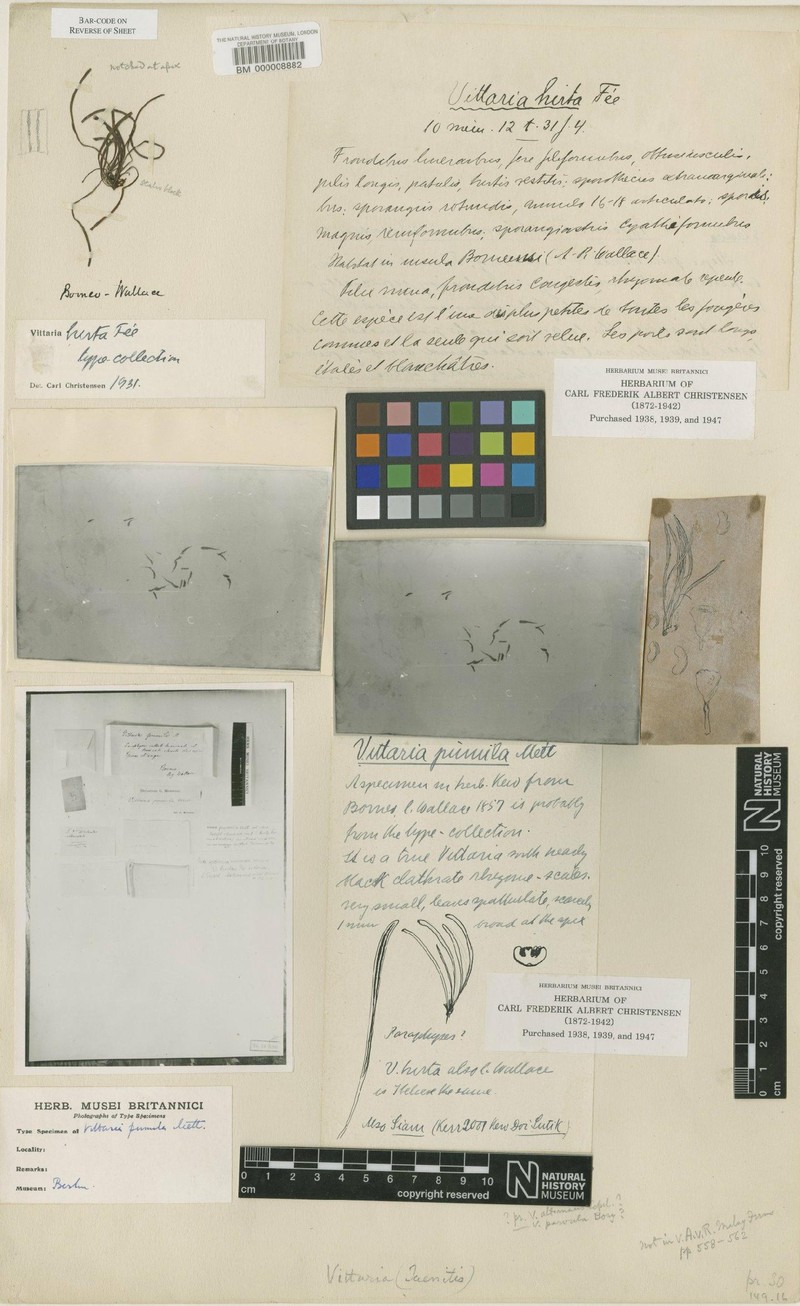 BAR-CODE ON
REVERSE OF SHEET
THE NATURAL HISTORY MUSEUM, LONDON
DEPARTMENT OF BOTANY
BM 000008882
notched at apex
scales black
Borneo - Wallace
Vittaria hirta Fée
type collection
Det. Carl Christensen 1931.
Vittaria hirta Fée
10 mém. 12 t. 31 f. 4.
Frondibus linearibus, fere filiformibus, obtusiusculis,
pilis longis, patulis, hirtis vestitis; sporotheciis extramarginali-
bus; sporangiis rotundis, annulo 16-18 articulato; sporis
magnis reniformibus; sporangiastris cyathiformibus
Habitat in insula Borneensi (A. R. Wallace).
Filix nana, frondibus congestis, rhizomate repente.
Cette espèce est l'une des plus petites de toutes les fougères
connues et la seule qui soit velue. Les poils sont longs,
étalés et blanchâtres.
HERBARIUM MUSEI BRITANNICI
HERBARIUM OF
CARL FREDERIK ALBERT CHRISTENSEN
(1872-1942)
Purchased 1938, 1939, and 1947
Vittaria pumila Mett
A specimen in herb. Kew from
Borneo l. Wallace 1857 is probably
from the type-collection.
It is a true Vittaria with nearly
black clathrate rhizome-scales.
very small, leaves spathulate, scarcely
1 mm broad at the apex
Paraphyses?
V. hirta also l. Wallace
is I believe the same.
Also Siam (Kerr 2001 Kew Doi Sutik)
HERBARIUM MUSEI BRITANNICI
HERBARIUM OF
CARL FREDERIK ALBERT CHRISTENSEN
(1872-1942)
Purchased 1938, 1939, and 1947
NATURAL
HISTORY
MUSEUM
copyright reserved
0 1 2 3 4 5 6 7 8 9 10
cm
HERB. MUSEI BRITANNICI
Photographs of Type Specimens
Type Specimen of Vittaria pumila Mett.
Locality:
Remarks:
Museum: Berlin
0 1 2 3 4 5 6 7 8 9 10
cm
copyright reserved
NATURAL
HISTORY
MUSEUM
V. parvula Bory?
not in v. A. v. R. Malay Ferns
pp 558-562
Vittaria (Taenitis)
pr. 30
149.16